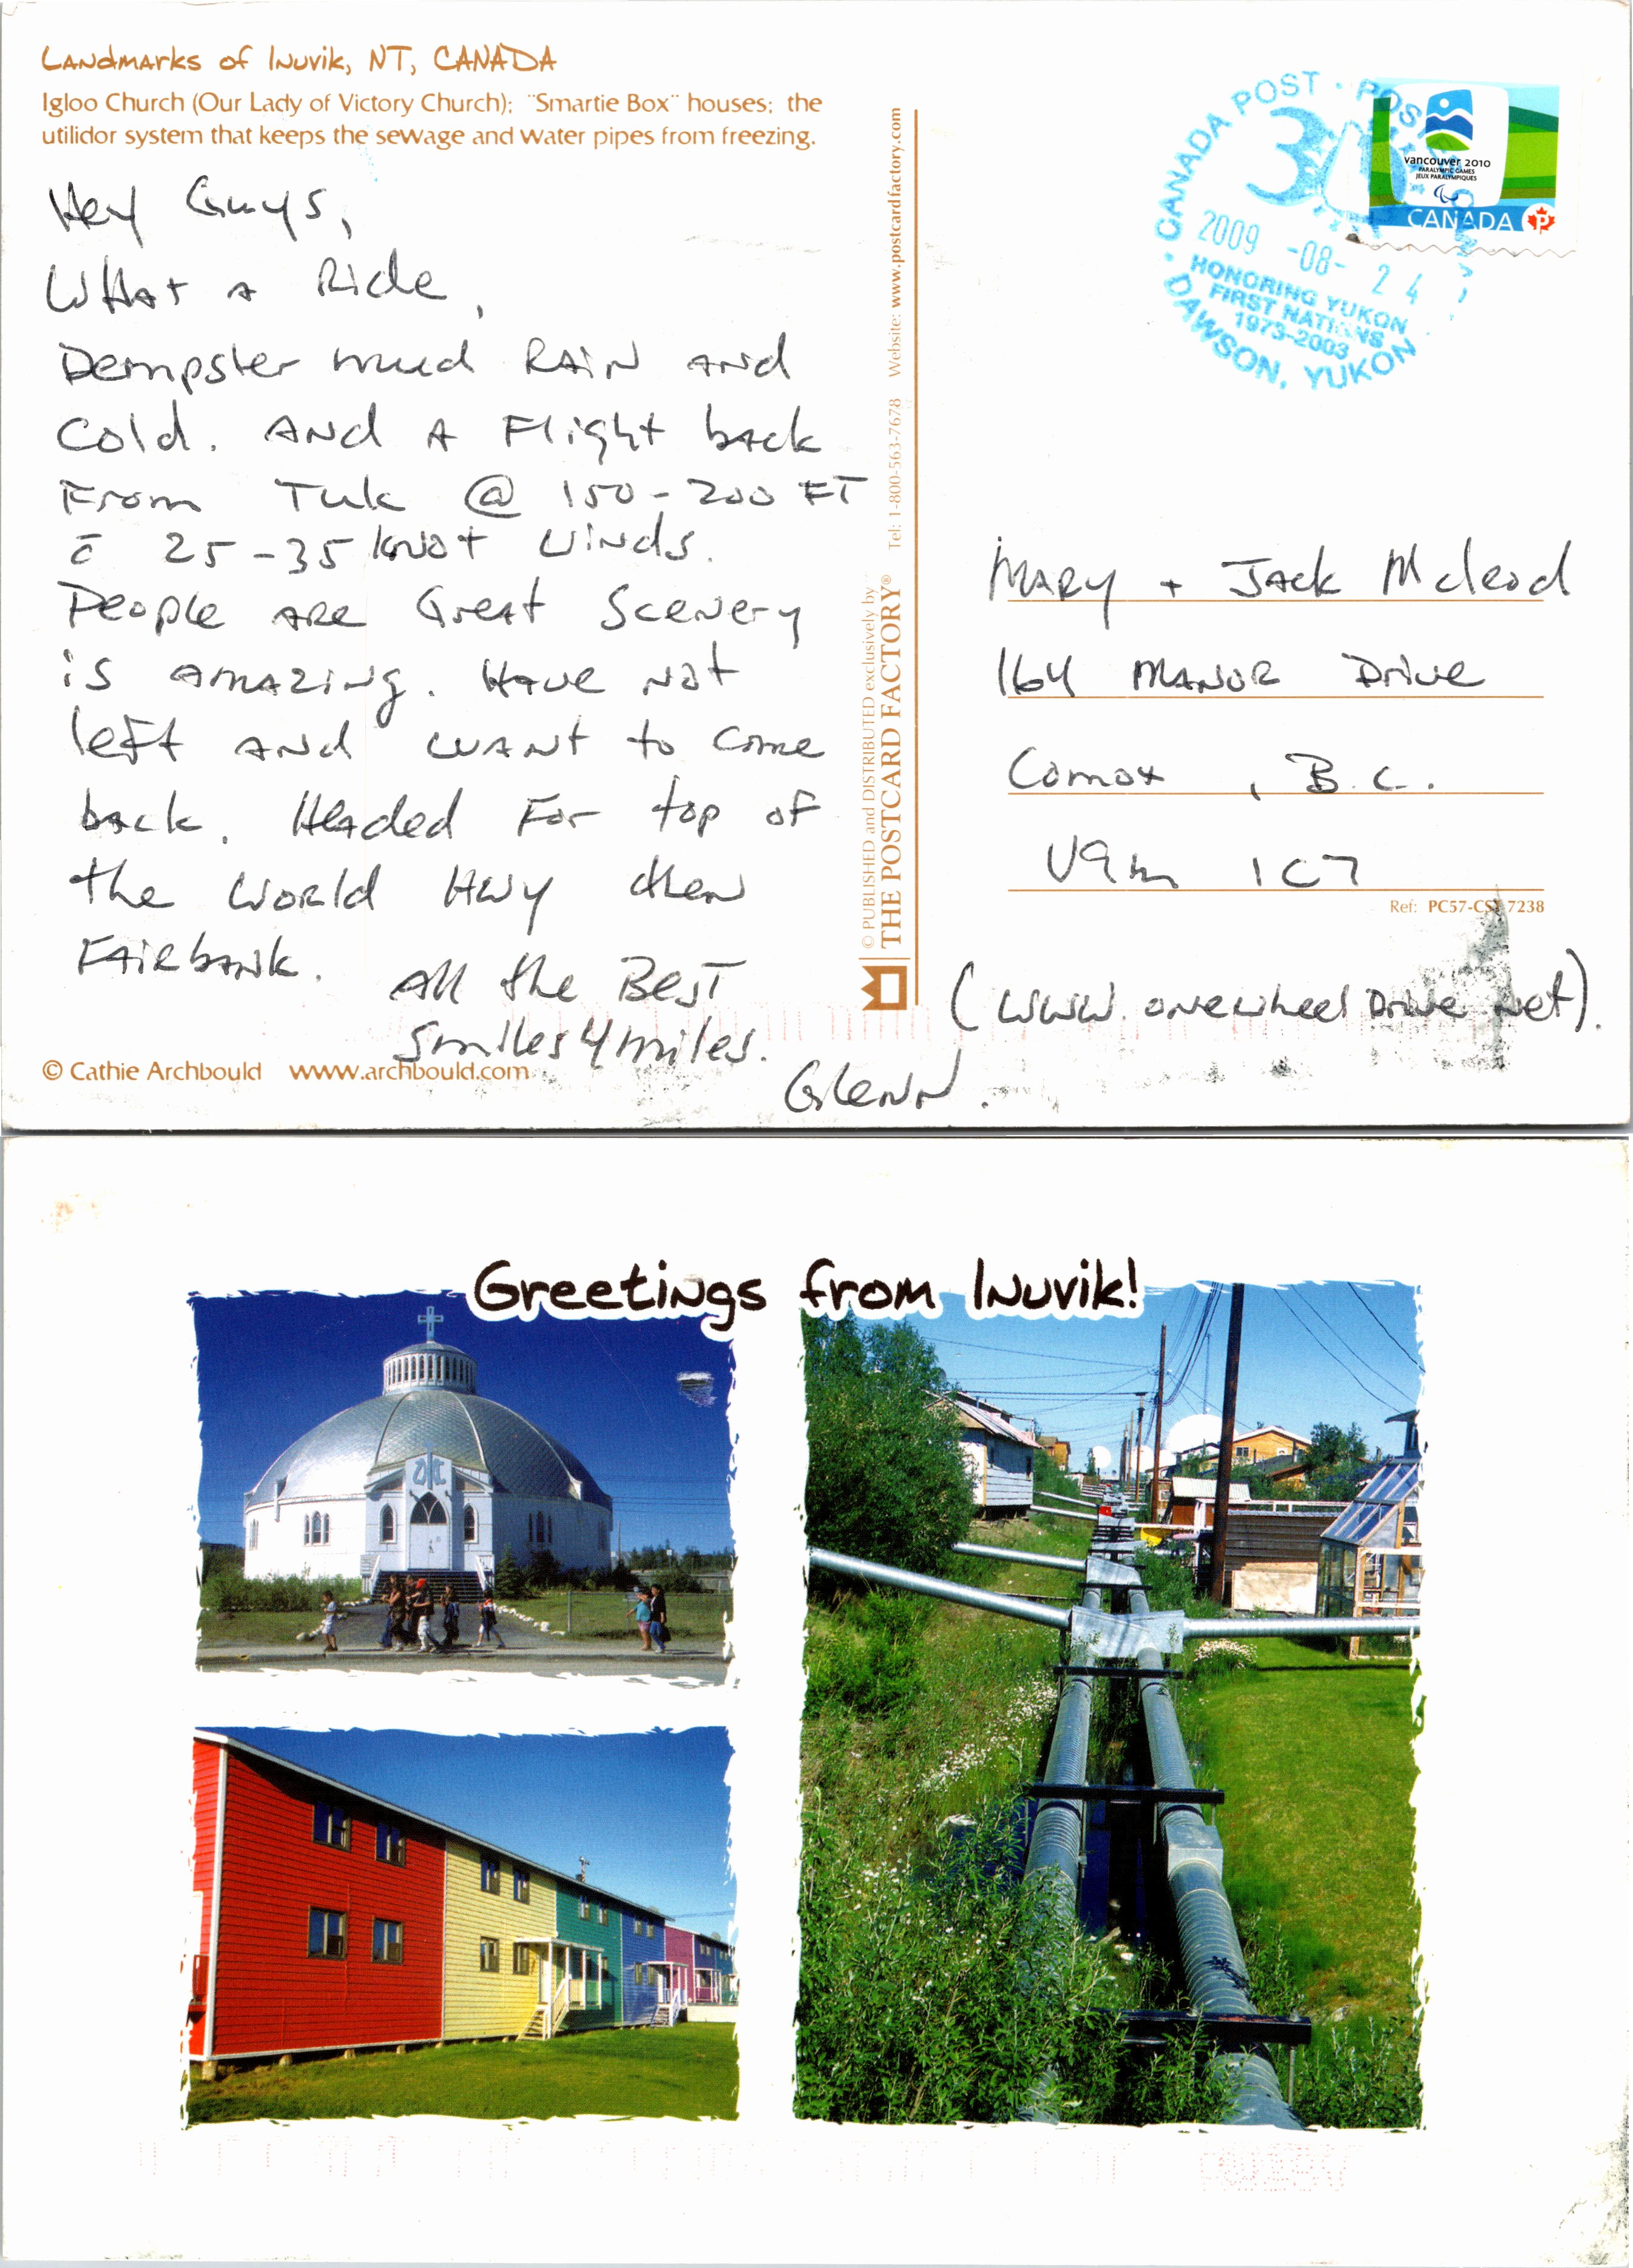 Landmarks of Inuvik, NT, CANADA
Igloo Church (Our Lady of Victory Church); "Smartie Box" houses; the
utilidor system that keeps the sewage and water pipes from freezing.
Hey Guys,
What a Ride,
Dempster mud RAIN AND
Cold. AND A Flight back
From Tuk @ 150-200 FT
c̄ 25-35 knot winds.
People ARE Great Scenery
is amazing. Have not
left and WANT to come
back. Headed For top of
the World Hwy then
Fairbank.
All the Best
Smiles 4 miles.
Glenn.
(www.onewheelDrive.net).
© Cathie Archbould www.archbould.com
© PUBLISHED and DISTRIBUTED exclusively by
THE POSTCARD FACTORY® Tel: 1-800-563-7678 Website: www.postcardfactory.com
CANADA POST · POS
30
2009 -08- 24
HONORING YUKON
FIRST NATIONS
1973-2003
DAWSON, YUKON
vancouver 2010
PARALYMPIC GAMES
JEUX PARALYMPIQUES
CANADA P
Mary + Jack Mcleod
164 Manor Drive
Comox, B.C.
V9M 1C7
Ref: PC57-CS 7238
Greetings from Inuvik!